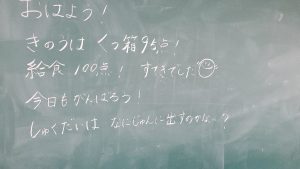 おはよう！
きのうは くつ箱95点！
給食 100点！ すてきでした
今日もがんばろう！
しゅくだいは なにじゅんに出すのかな〜？